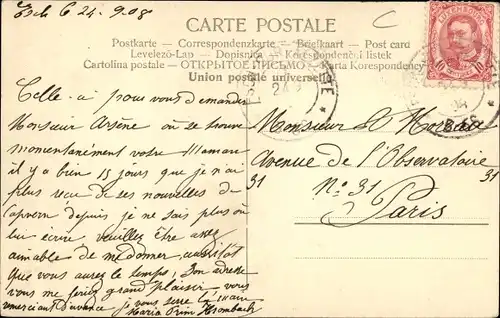 Esch 6 24. 9. 08
CARTE POSTALE
Postkarte — Correspondenzkarte — Briefkaart — Post card
Levelező-Lap — Dopisnice — Korespondenční lístek
Cartolina postale — ОТКРЫТОЕ ПИСЬМО — Karta Korespondency
Union postale universelle
LUXEMBOURG
10 10
24
Celle-ci pour vous demander
Monsieur Arsène où se trouve
momentanément votre Maman
il y a bien 15 jours que je n'ai
plus reçu de ses nouvelles de
Capvern depuis je ne sais plus où
lui écrire, veuillez être assez
aimable de me donner aussitôt
que vous aurez le temps, son adresse
vous me feriez grand plaisir. vous
remerciant d'avance je vous serre la main
Maria Prim Krombach
Monsieur A
Avenue de l'Observatoire
31 31
N° 31
Paris